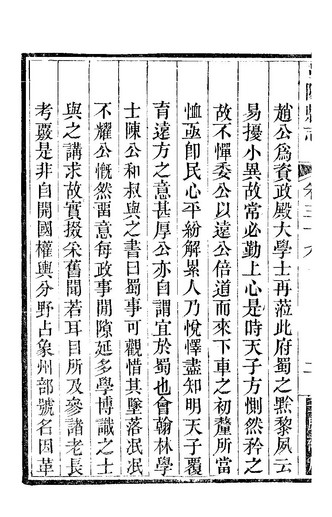 趙公爲資政殿大學士再蒞此府蜀之黥黎夙云
易擾小異故常必勤上心是時天子方惻然矜之
故不憚委公以遠公倍道而來下車之初釐所當
恤亟卽民心平紛解累人乃悅懌盡知明天子覆
育遠方之意甚厚公亦自謂宜於蜀也會翰林學
士陳公和叔與之書曰蜀事可觀惜其墜落泯泯
不耀公慨然畱意每政事閒隙延多學博識之士
與之講求故實掇采舊聞若耳目所及參諸老長
考覈是非自開國權輿分野占象州部號名因革
縣志